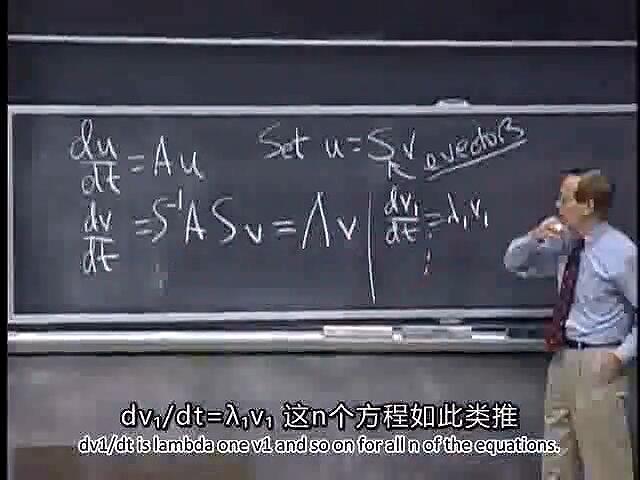 du/dt = Au
Set u = Sv
evectors
dv/dt = S⁻¹ASv = Λv
dv₁/dt = λ₁v₁
⋮
dv₁/dt=λ₁v₁ 这n个方程如此类推
dv1/dt is lambda one v1 and so on for all n of the equations.